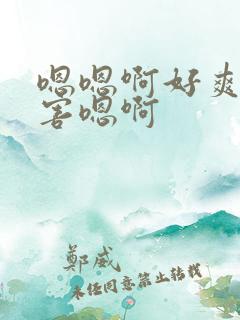 嗯嗯啊好爽
害嗯啊
鄭威
未任同意禁止转载